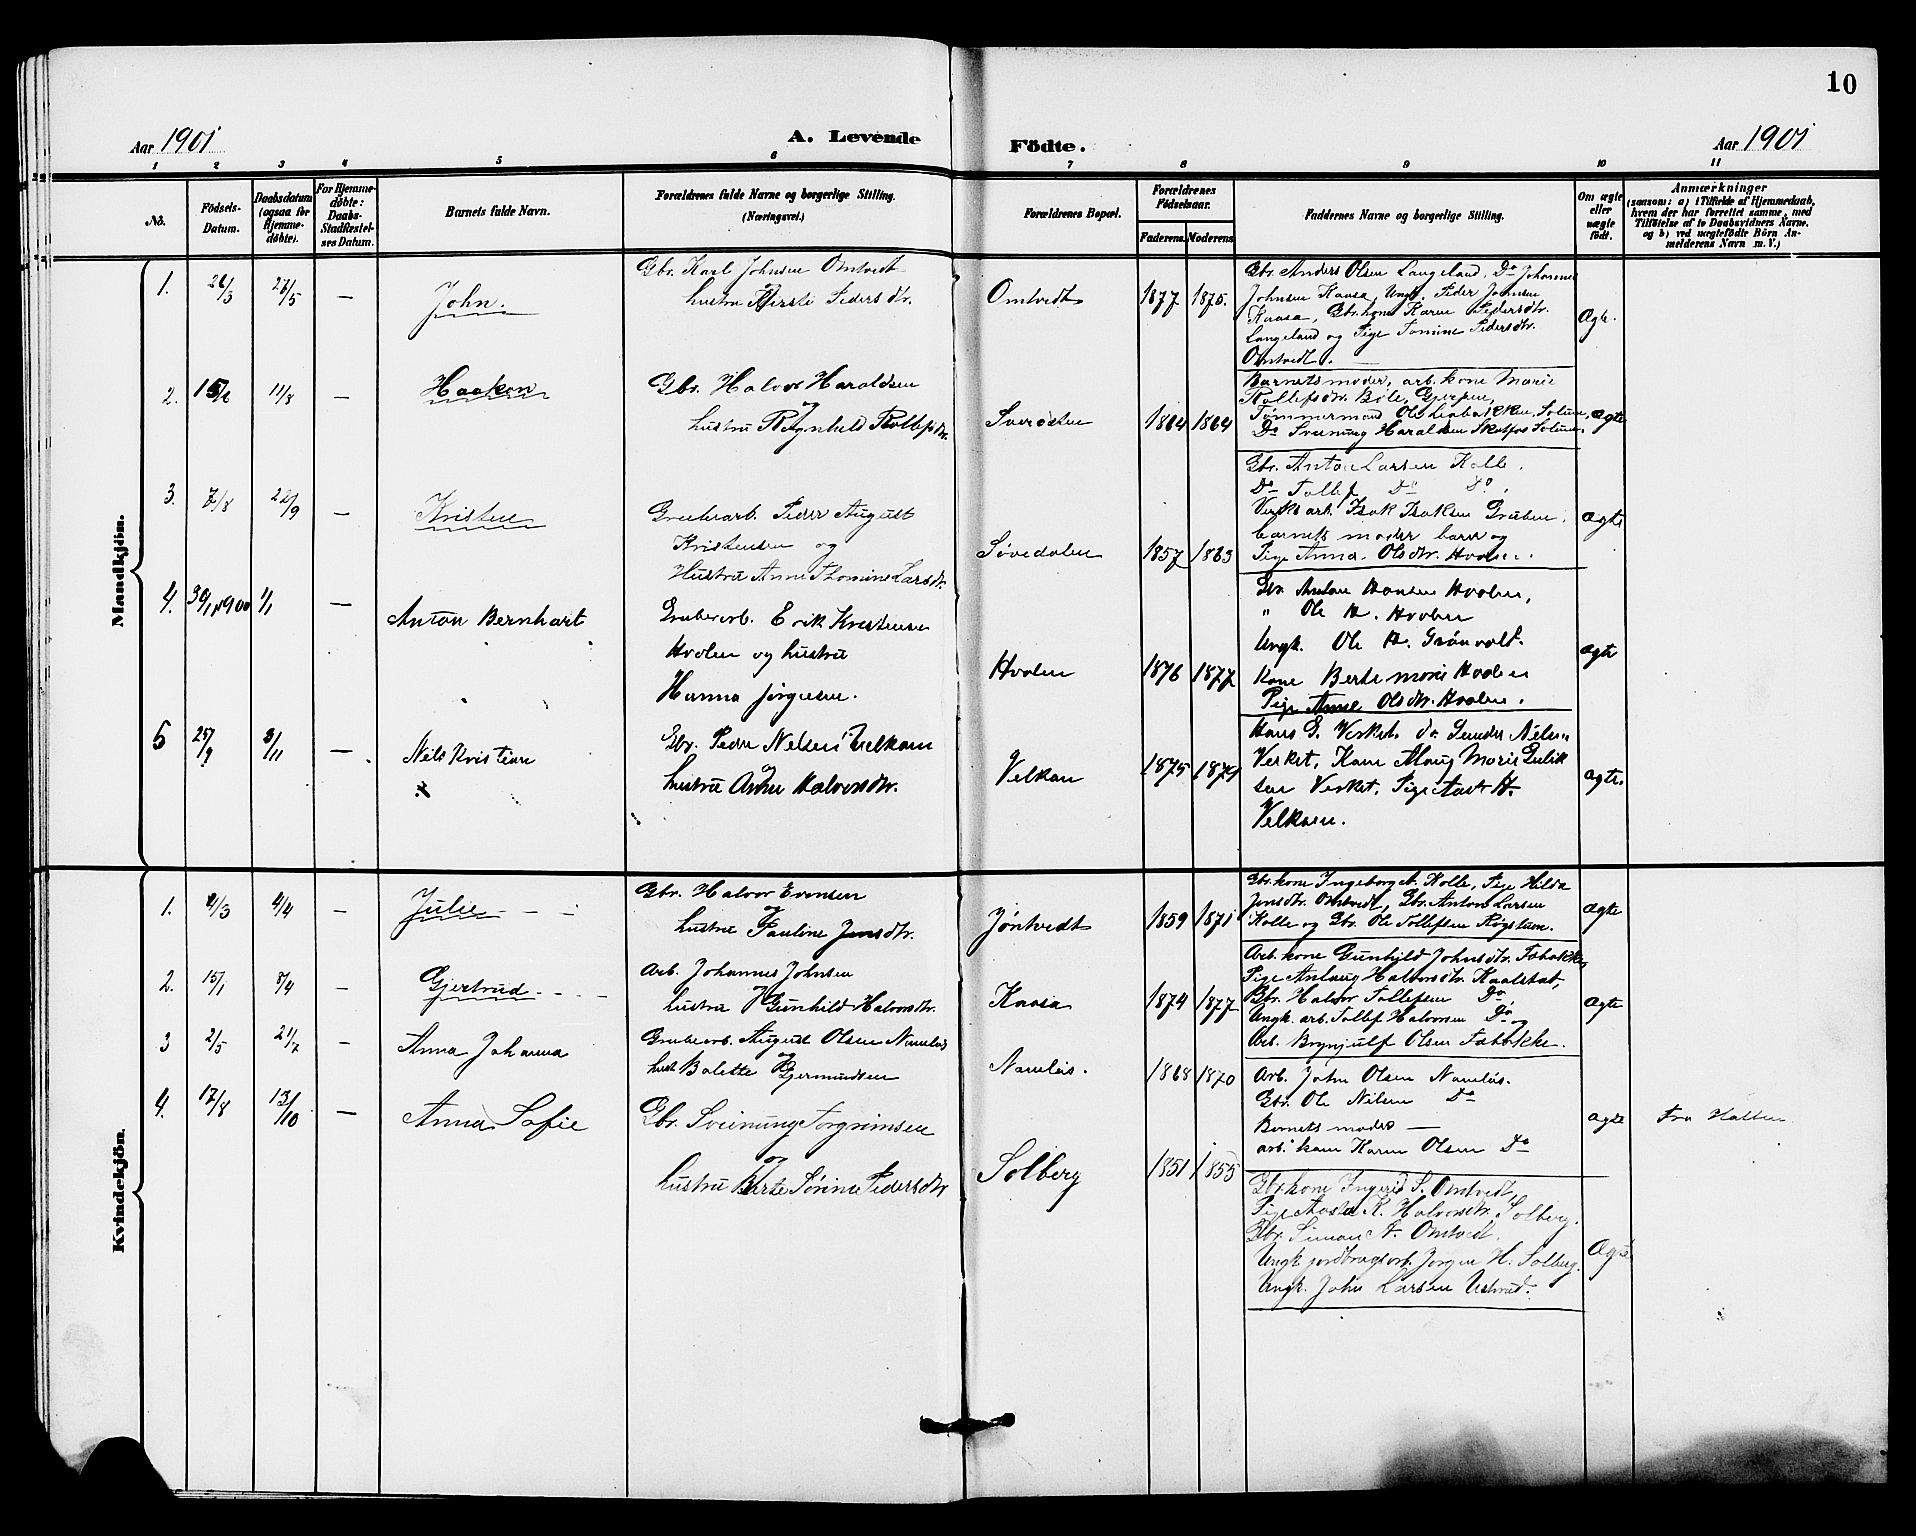 10
Aar 1901
A. Levende
Födte.
Aar 1901
1 2 3 4 5 6 7 8 9 10 11
No.
Födsels-
Datum.
Daabsdatum
(ogsaa for
Hjemme-
döbte).
For Hjemme-
döbte:
Daabs-
Stadfæstel-
ses Datum.
Barnets fulde Navn.
Forældrenes fulde Navne og borgerlige Stilling.
(Næringsvei.)
Forældrenes Bopæl.
Forældrenes
Födselsaar.
Faderens.
Moderens
Faddernes Navne og borgerlige Stilling.
Om ægte
eller
uægte
født.
Anmærkninger
(saasom: a) i Tilfælde af Hjemmedaab,
hvem der har forrettet samme, med
Tilföielse af to Daabsvidners Navne.
og b) ved uægtefödte Börn An-
melderens Navn m. V.)
Mandkjön.
1. 26/3 27/5 —
John.
Gbr. Karl Johnsen Omtvedt
og
hustru Kirsti Pedersdtr.
Omtvedt
1877 1875.
Gbr. Anders Olsen Langeland, Do Johannes
Johnsen Kaasa, Ungk. Peder Johnsen
Kaasa, Gbr.kone Karen Pedersdtr.
Langeland og Pige Tomine Pedersdtr.
Omtvedt.
Ægte.
2. 15/6 11/8 —
Haakon
Gbr. Halvor Haraldsen
og
hustru Ragnhild Rollefsdtr.
Sverösten
1864 1864
Barnets moder, arb. kone Marie
Rollefsdtr. Böle, Gjerpen,
Tømmermand Ole Solum,
Do Sveinung Haraldsen Skotfos Solum.
Ægte
3. 7/8 22/9 —
Kristen
Grubearb. Peder August
Kristensen og
Hustru Anne Thomine Larsdtr.
Søvedalen
1857 1863
Gbr. Anton Larsen Kolle.
Do Tollef Do Do,
Verksarb. Isak Isaksen Gruben.
barnets moder bar og
Pige Anna Olsdtr. Hvalen.
Ægte
4. 30/11 1900 1/1 —
Anton Bernhart
Grubearb. Erik Kristensen
Hvolen og hustru
Hanna Jørgensen.
Hvolen
1876 1877
Gbr. Anton Hansen Hvolen,
" Ole H. Hvolen
Ungk. Ole H. Grönvold.
Kone Berte Marie Hvolen
Pige Anne Olsdtr. Hvolen.
ægte
5 25/9 3/11 —
Nils Kristian
Gbr. Peder Nelsen Velkaen
og
hustru Anne Halvorsdtr.
Velkaen
1875 1874
Hans G. Verket. do. Gunder Nilsen
Verket, Kone Maug Marie
sen Verket. Pige Aaste H.
Velkaen.
ægte.
Kvindekjön.
1. 2/3 4/4 —
Julie
Gbr. Halvor Evensen
og
hustru Pauline Jensdtr.
Jöntvedt
1859 1871
Gbr.kone Ingeborg A. Kolle, Pige Hilda
Jensdtr. Omtvedt, Gbr. Anton Larsen
Kolle og Gbr. Ole Tollefsen
Ægte
2. 15/1 8/4 —
Gjertrud
Arb. Johannes Johnsen
og
hustru Gunhild Halvorsdtr.
Kaasa
1874 1877
Arb. kone Gunhild Johnsdtr. Fæbakke,
Pige Anlaug Halvorsdtr. Kaalstad,
Gbr. Halvor Tollefsen Do,
Ungk. arb. Tollef Halvorsen Do og
Arb. Brynjulf Olsen Fæbakke.
Ægte
3 2/5 21/7 —
Anna Johanna
Grubearb. August Olsen Namløs
og
hust. Bolette Gjermundsen
Namløs.
1868 1870
Arb. John Olsen Namløs.
Gbr. Ole Nilsen Do
Barnets moder —
arb. kone Karen Olsen Do
ægte
Fra Holten
4. 17/8 13/10 —
Anna Sofie
Gbr. Sveinung Torgrimsen
og
hustru Berte Sörine Pedersdtr
Solberg
1851 1855
Gbr.kone Ingerid S. Omtvedt,
Pige Aaste K. Halvorsdtr. Solberg.
Gbr. Simon A. Omtvedt.
Ungk. jordbrugsarb. Jørgen H. Solberg.
Ungk. John Larsen Ustrud.
Ægte